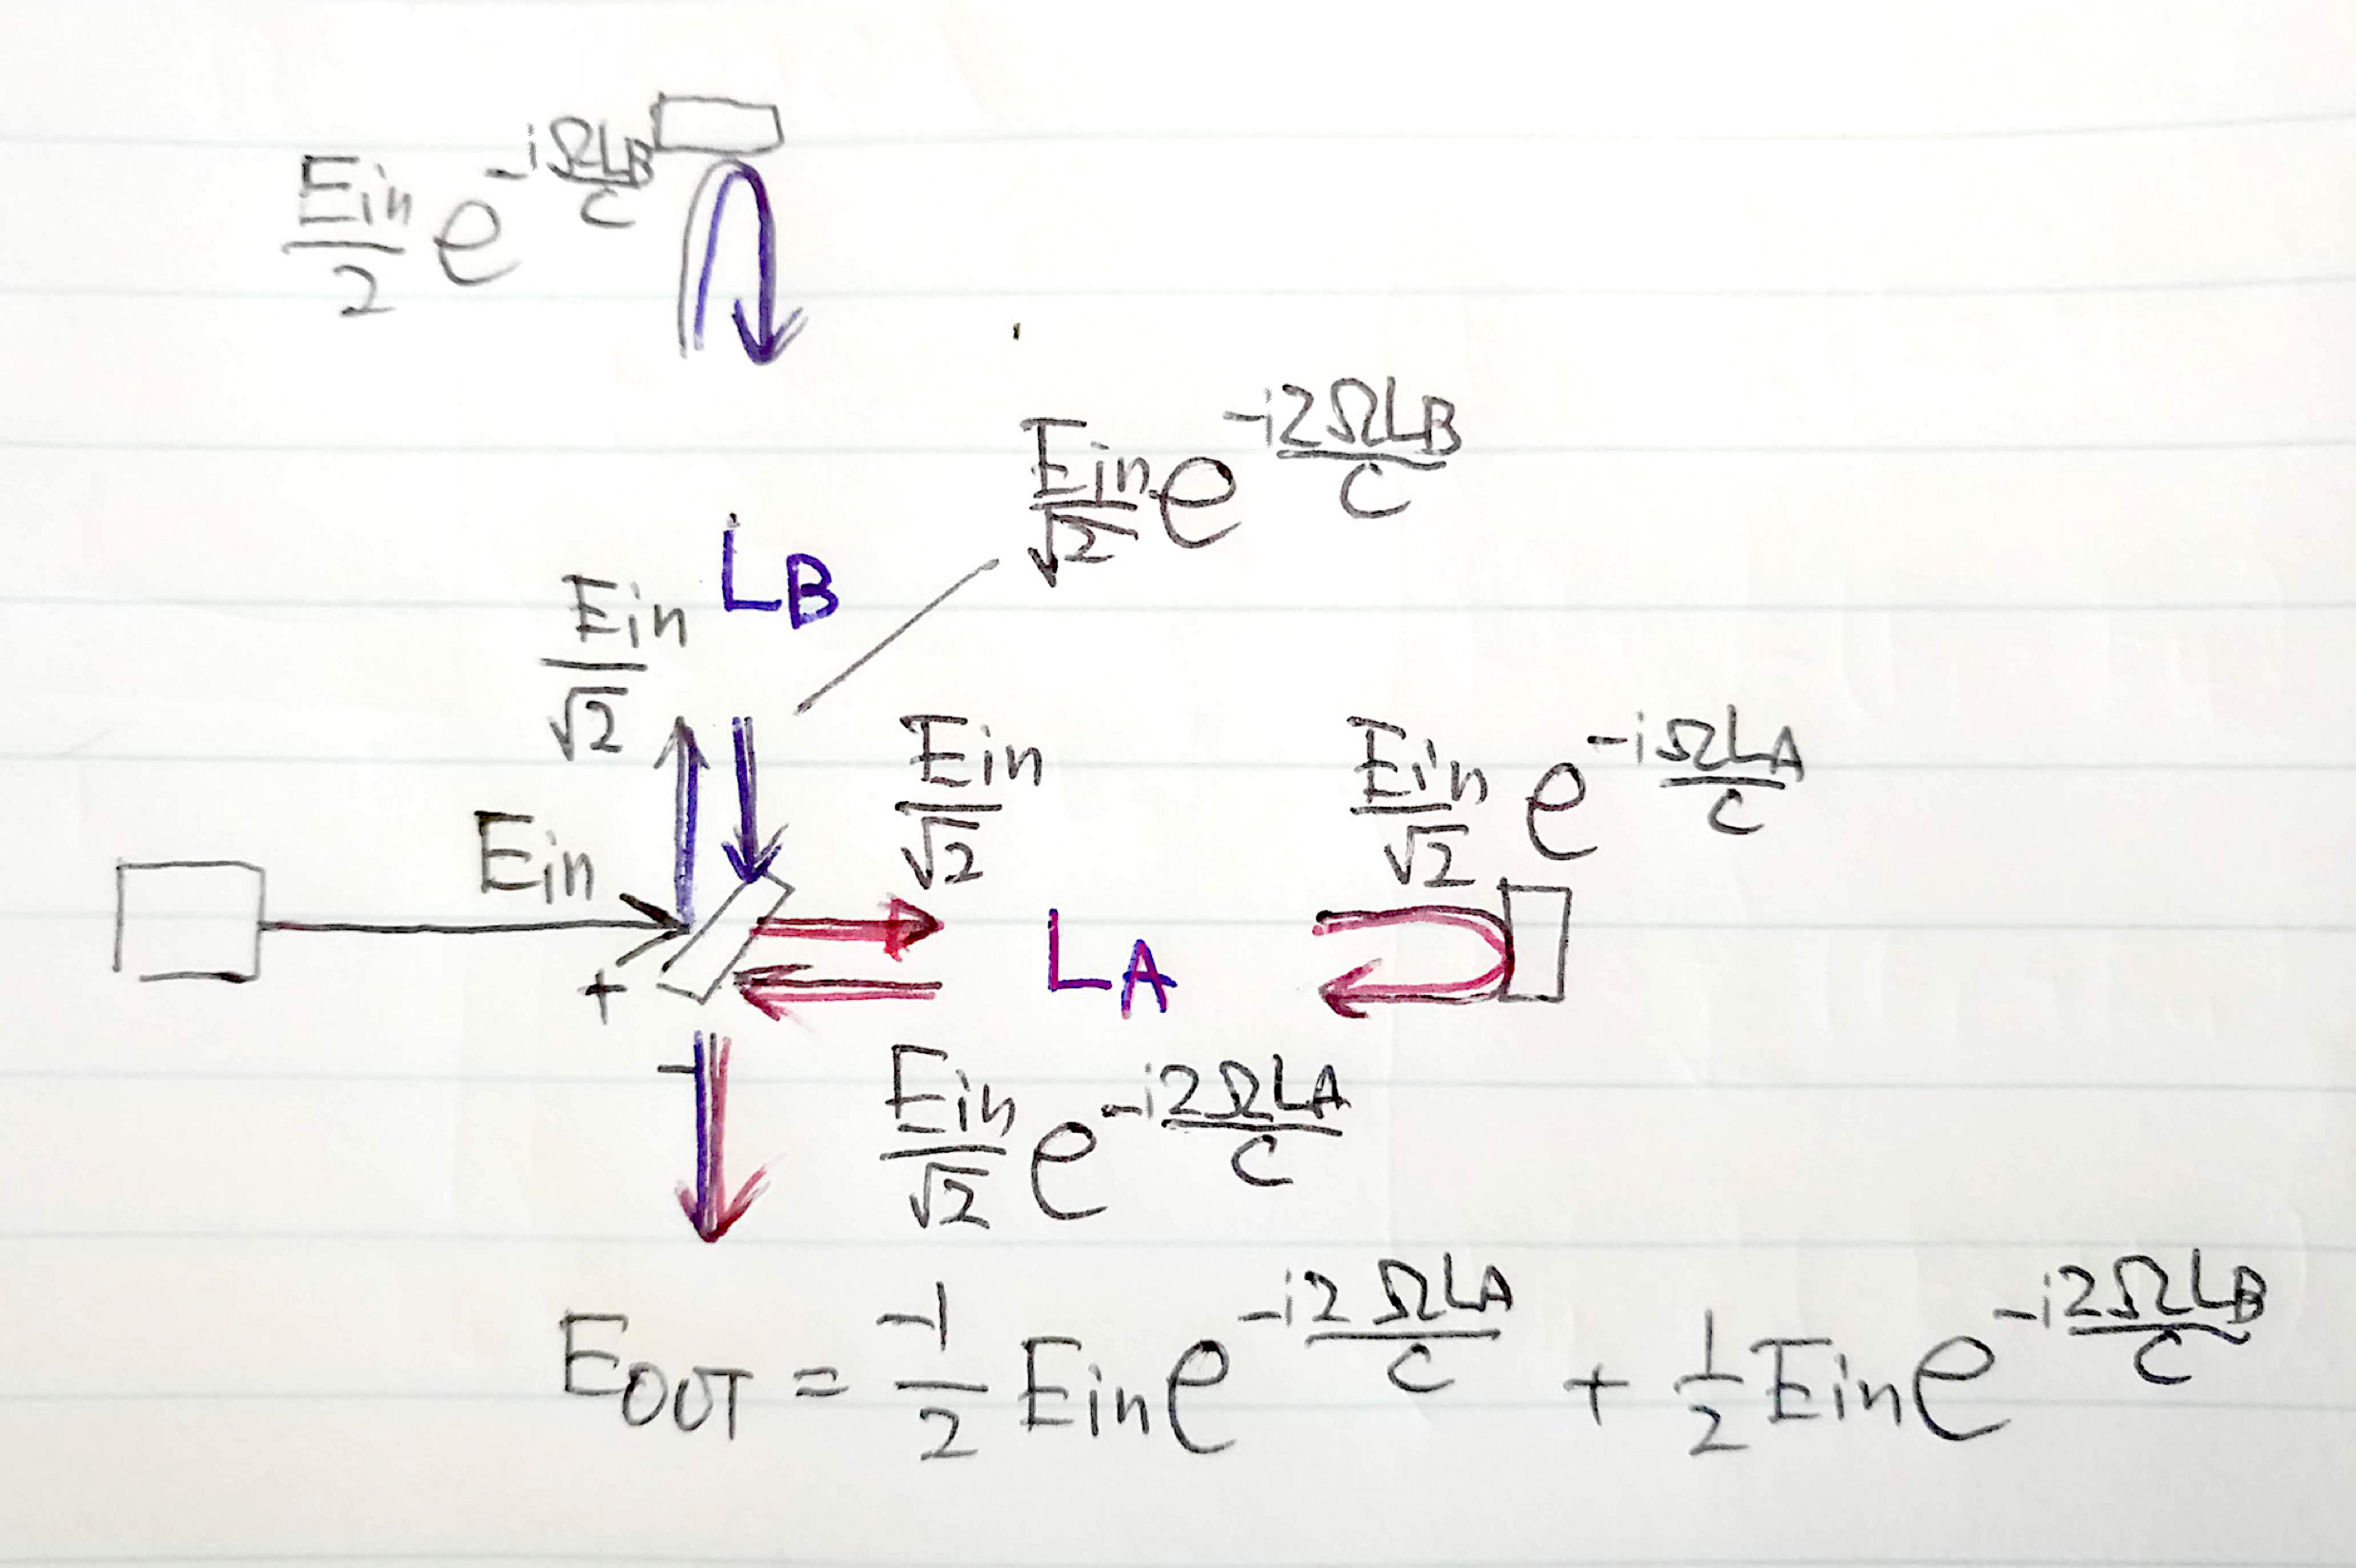 Ein/2 e^(-iΩLB/C)
Ein/√2 e^(-i2ΩLB/C)
LB
Ein/√2
Ein/√2
Ein/√2 e^(-iΩLA/C)
Ein
LA
+
-
Ein/√2 e^(-i2ΩLA/C)
EOUT = -1/2 Ein e^(-i2ΩLA/C) + 1/2 Ein e^(-i2ΩLB/C)